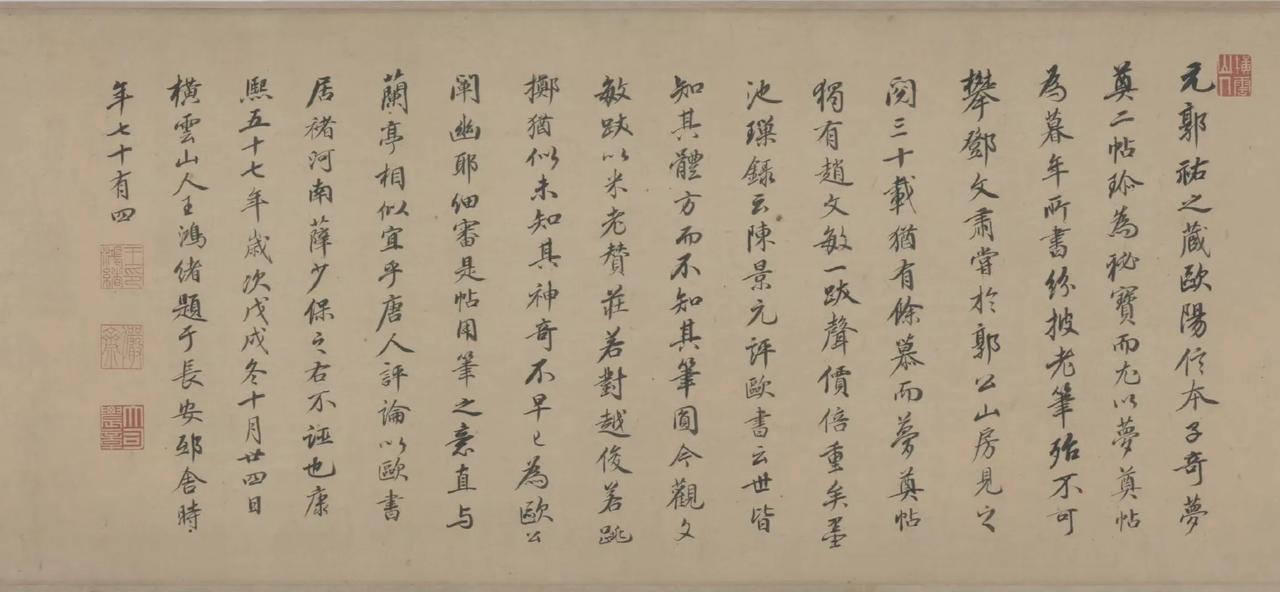 元郭祐之蔵歐陽信本子奇夢
奠二帖珍為秘寶而尤以夢奠帖
為暮年所書紛披老筆殆不可
攀鄧文肅嘗於郭公山房見之
閱三十載猶有餘慕而夢奠帖
獨有趙文敏一跋聲價倍重矣墨
池璅錄云陳景元評歐書云世皆
知其體方而不知其筆圓今觀文
敏跋以米老賛莊若對越俊若跳
擲猶似未知其神奇不早已為歐公
闡幽耶細審是帖用筆之意直与
蘭亭相似宜乎唐人評論以歐書
居褚河南薛少保之右不誣也康
熙五十七年歲次戊戌冬十月廿四日
橫雲山人王鴻緒題于長安邸舍時
年七十有四
橫雲山人
王鴻緒印
儼齋